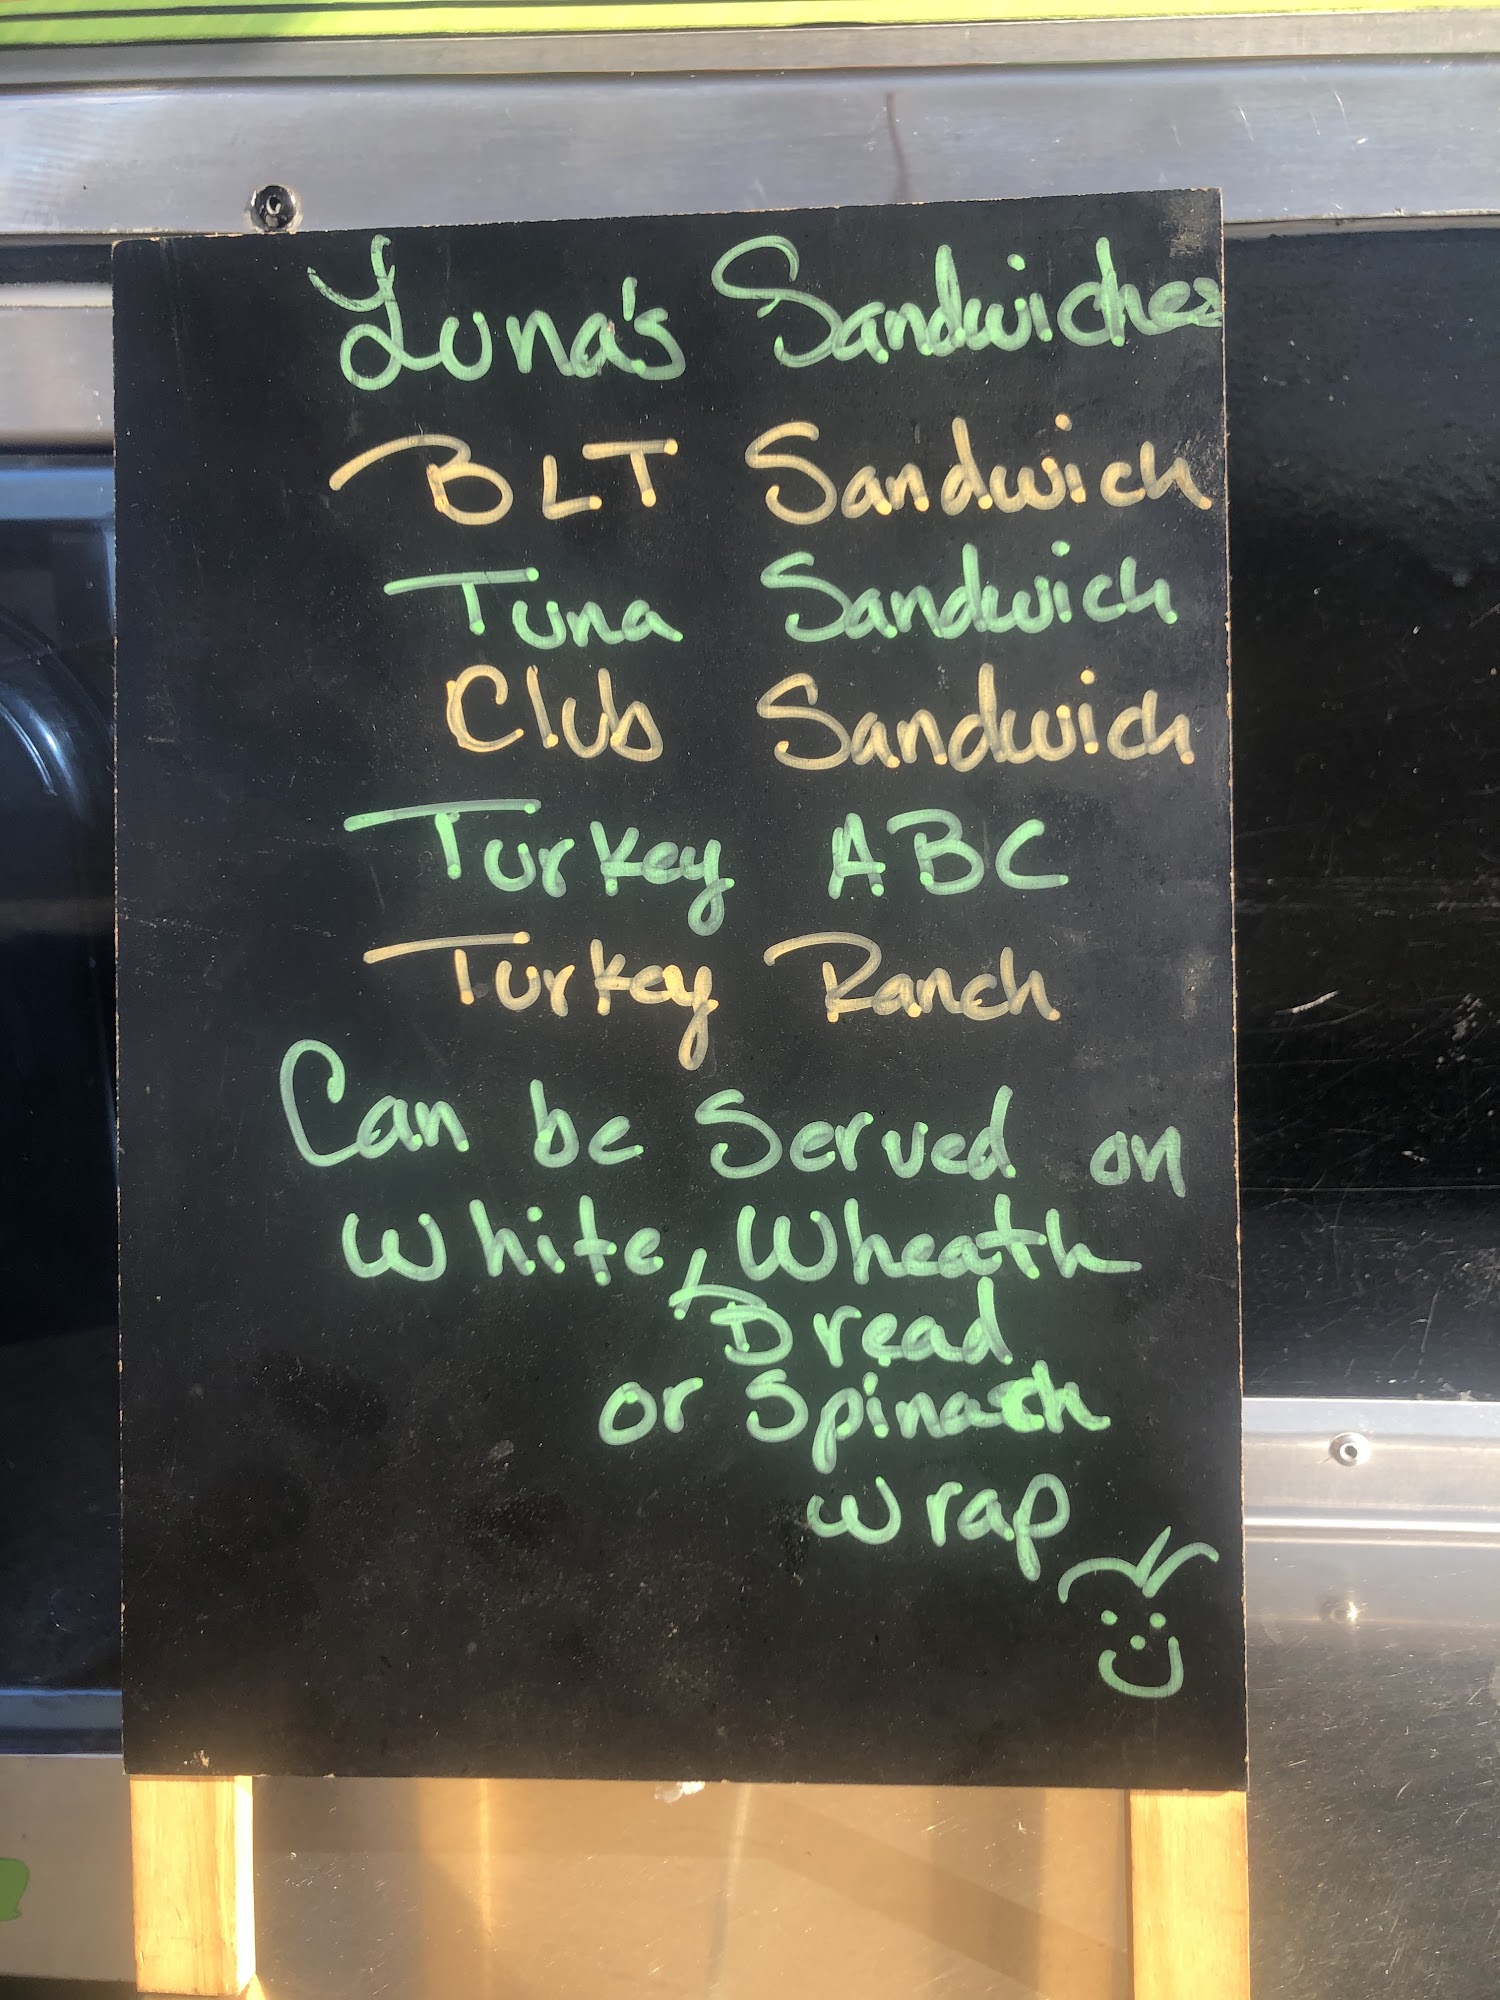 Luna's Sandwiches
BLT Sandwich
Tuna Sandwich
Club Sandwich
Turkey ABC
Turkey Ranch
Can be Served on
White, Wheath
Bread
or Spinach
wrap